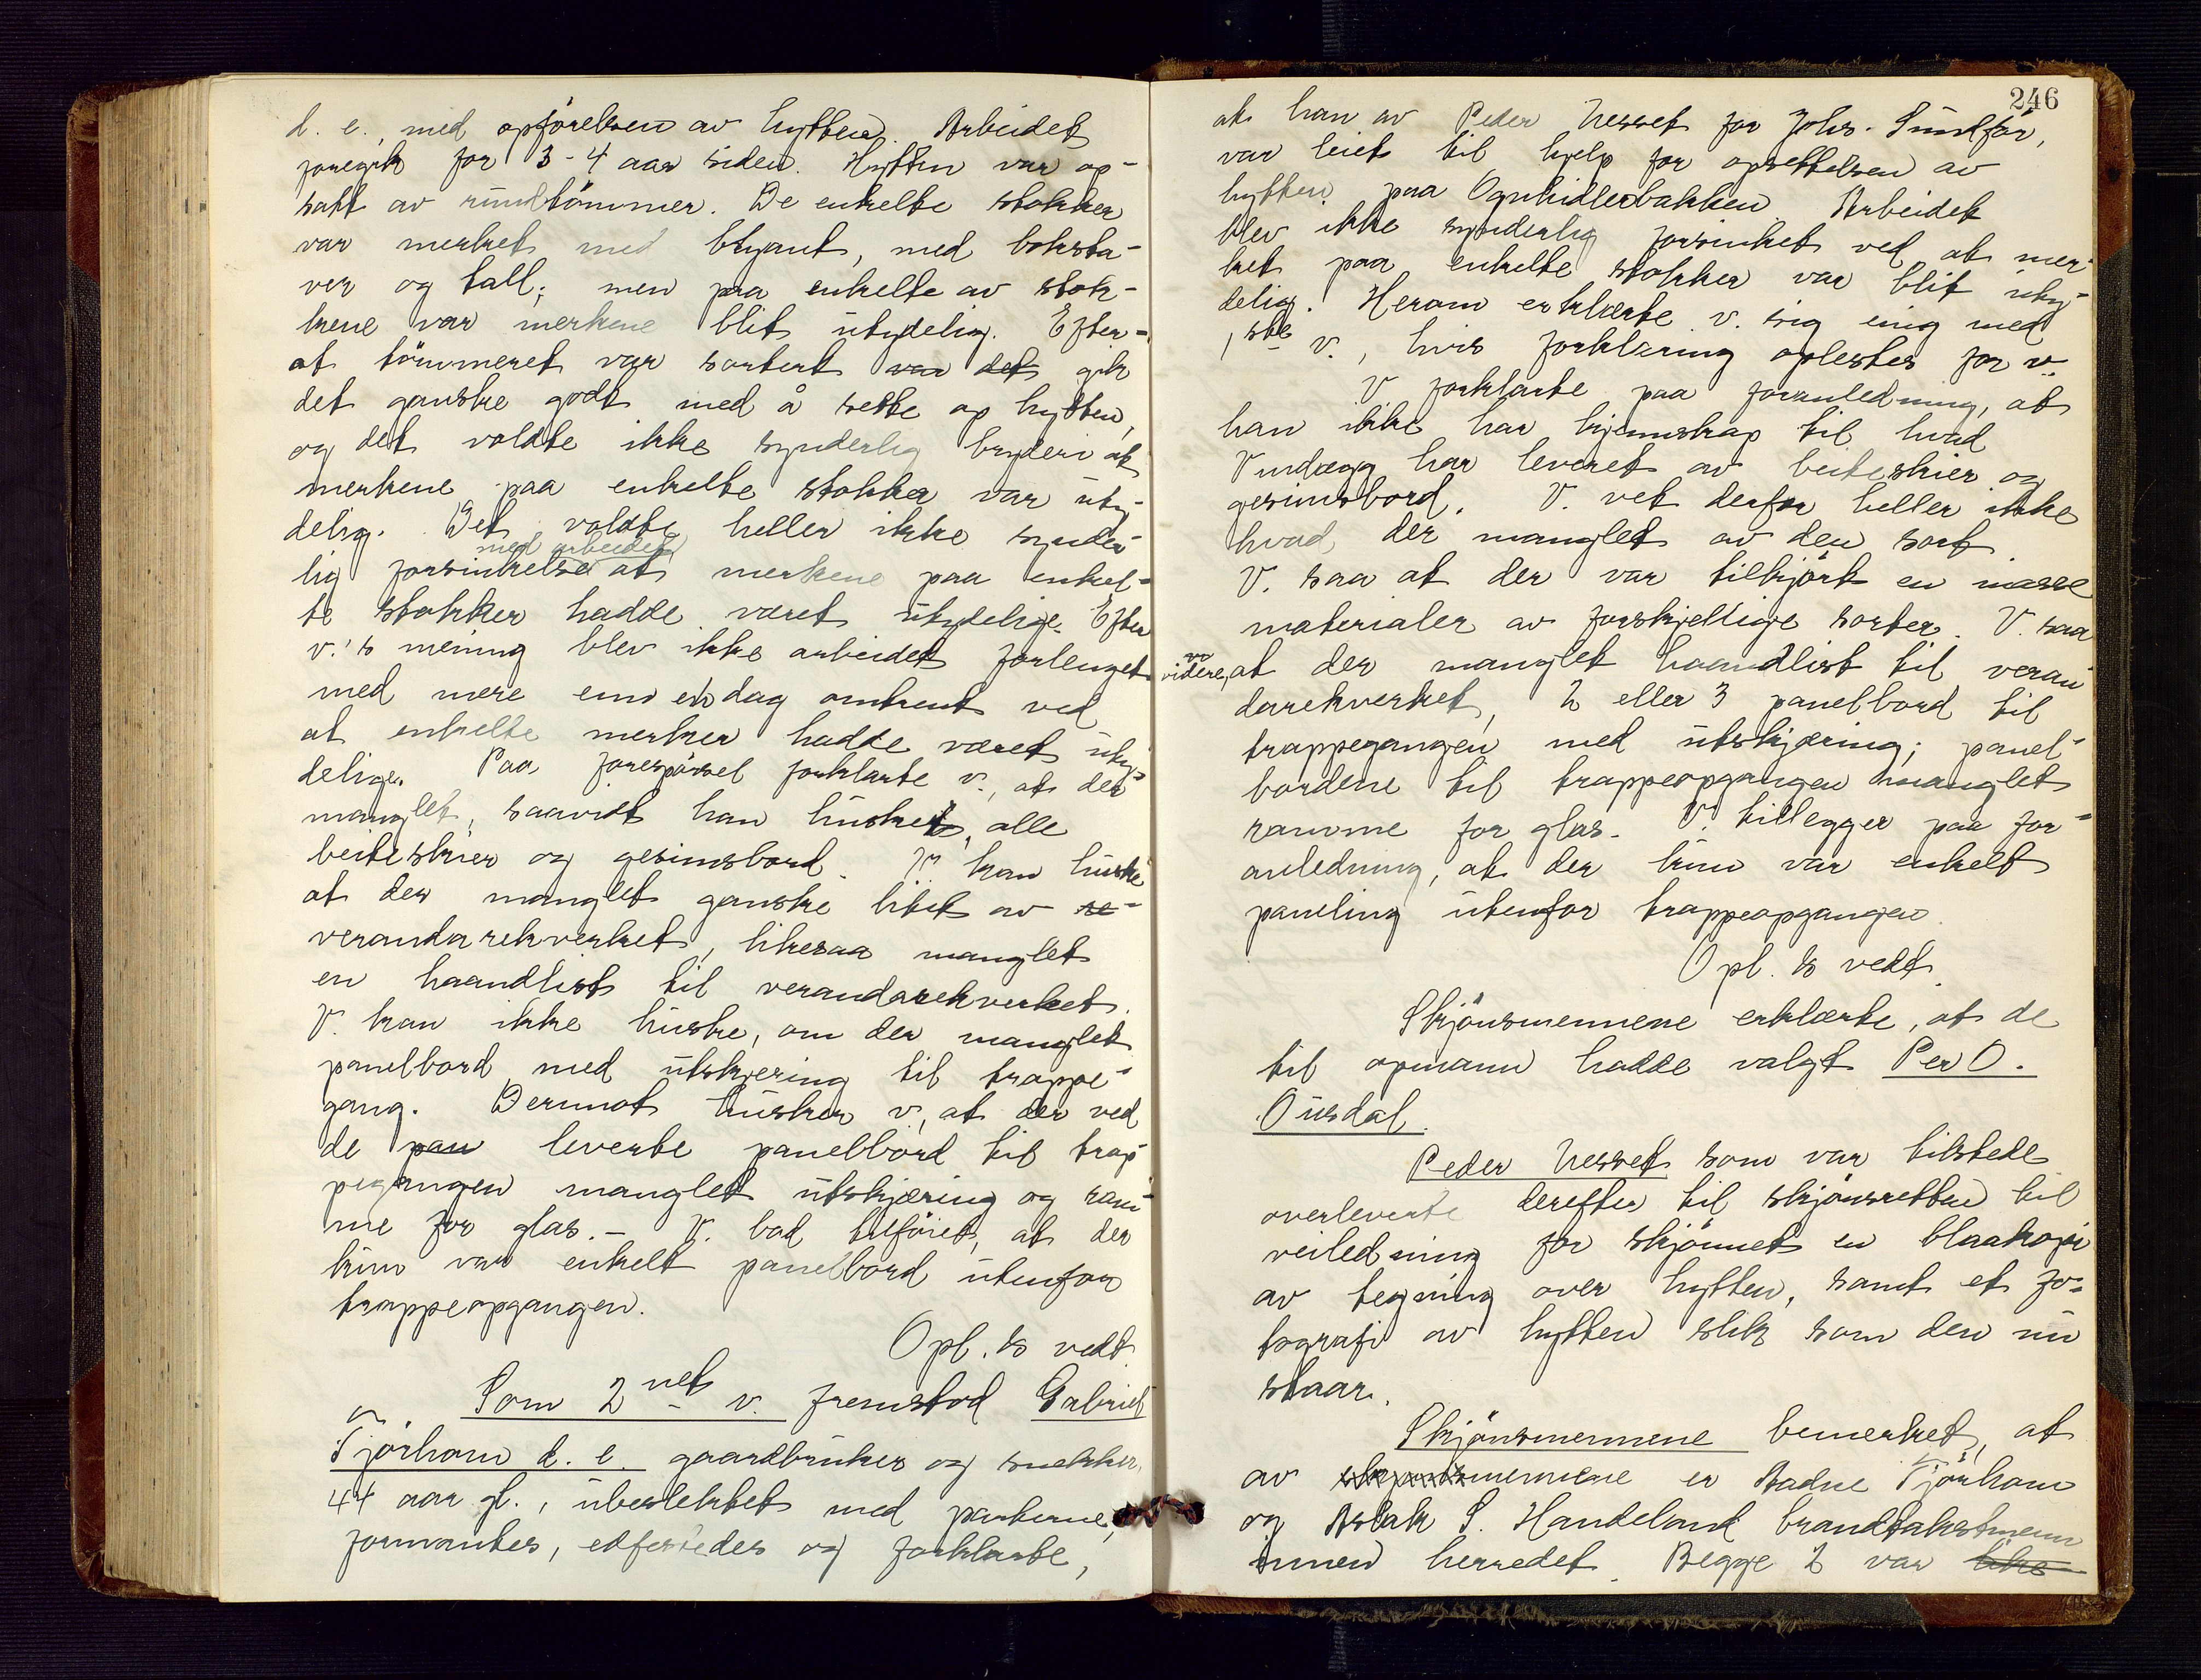 d. e., med opførelsen av hytten. Arbeidet
foregik for 3-4 aar siden. Hytten var op-
satt av rundtømmer. De enkelte stokker
var merket med blyant, med boksta-
ver og tall; men paa enkelte av stok-
kene var merkene blit utydelig. Efter-
at tømmeret var sortert var det gik
det ganske godt med å sette op hytten,
og det voldte ikke synderlig bryderi at
merkene paa enkelte stokker var uty-
delig. Det voldte heller ikke synder-
med arbeidet
lig forsinkelse at merkene paa enkel-
te stokker hadde været utydelige. Efter
v.'s mening blev ikke arbeidet forlenget
med mere enn en dag omtrent ved
at enkelte merker hadde været uty-
delige. Paa forespørsel forklarte v., at det
manglet, saavidt han husket, alle
beiteskier og gesimsbord. V. kan huske
at der manglet ganske litet av re-
verandarekverket, likesaa manglet
en haandlist til verandarekverket.
V. kan ikke huske, om der manglet
panelbord med utskjering til trappe-
gang. Derimot husker v., at der ved
de pan leverte panelbord til trap-
pegangen manglet utskjæring og ram-
me for glas. - V. bad tilføiet, at der
kun var enkelt panelbord utenfor
trappeopgangen.
Opl. ts vedt.
Som 2net v. fremstod Gabriel
Tjørhom d. e. gaardbruker og snekker,
44 aar gl., ubeslektet med parterne,
formantes, edfestedes og forklarte,
246
at han av Peder Nesset for Johs. Sundfør,
var leiet til hjelp for opsettelsen av
hytten paa Ognhidlerbakken. Arbeidet
blev ikke synderlig forsinket ved at mer-
ket paa enkelte stokker var blit uty-
delig. Herom erklærte v. sig enig med
1ste v., hvis forklaring oplestes for v.
V forklarte paa foranledning, at
han ikke har kjennskap til hvad
Vindægg har leveret av beiteskier og
gesimsbord. V. vet derfor heller ikke
hvad der manglet av den sort.
V. saa at der var tilkjørt en masse
materialer av forskjellige sorter. V. saa
videre, at der manglet haandlist til veran-
darekverket, 2 eller 3 panelbord til
trappegangen med utskjæring; panel-
bordene til trappeopgangen manglet
ramme for glas. V. tillegger paa for-
anledning, at der kun var enkelt
paneling utenfor trappeopgangen.
Opl. ts vedt.
Skjønsmennene erklærte, at de
til opmann hadde valgt Per O.
Ousdal.
Peder Nesset som var tilstede
overleverte derefter til skjønsretten til
veiledning for skjønnet en blaakopi
av tegning over hytten, samt et fo-
tografi av hytten slik som den nu
staar.
Skjønsmennene bemerket, at
av skjønsmennene er Aadne Tjørhom
og Aslak S. Handeland brandtakstmenn
innen herredet. Begge 2 var likes